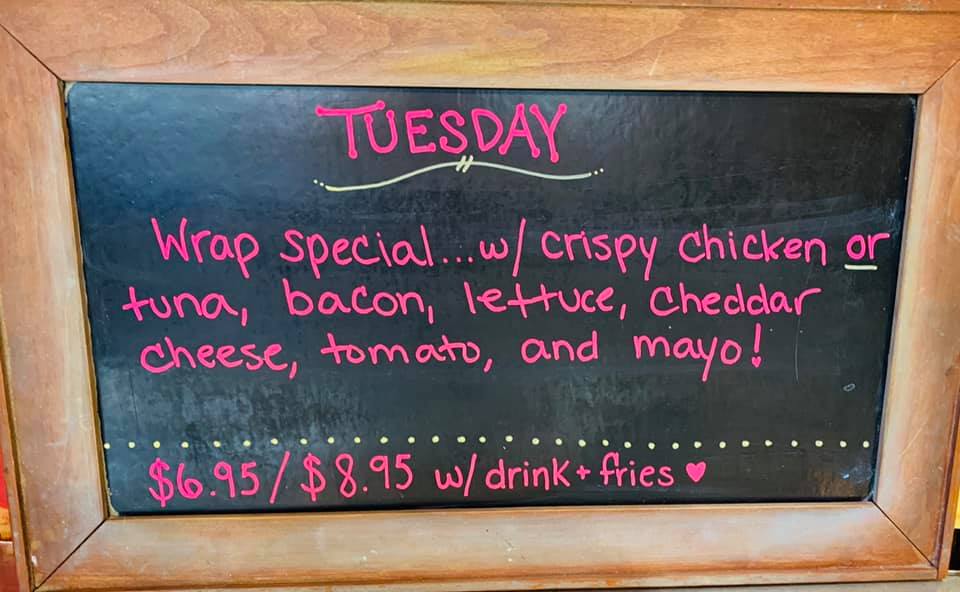 TUESDAY
Wrap special...w/ crispy chicken or
tuna, bacon, lettuce, cheddar
cheese, tomato, and mayo!
$6.95/$8.95 w/drink+fries ♥